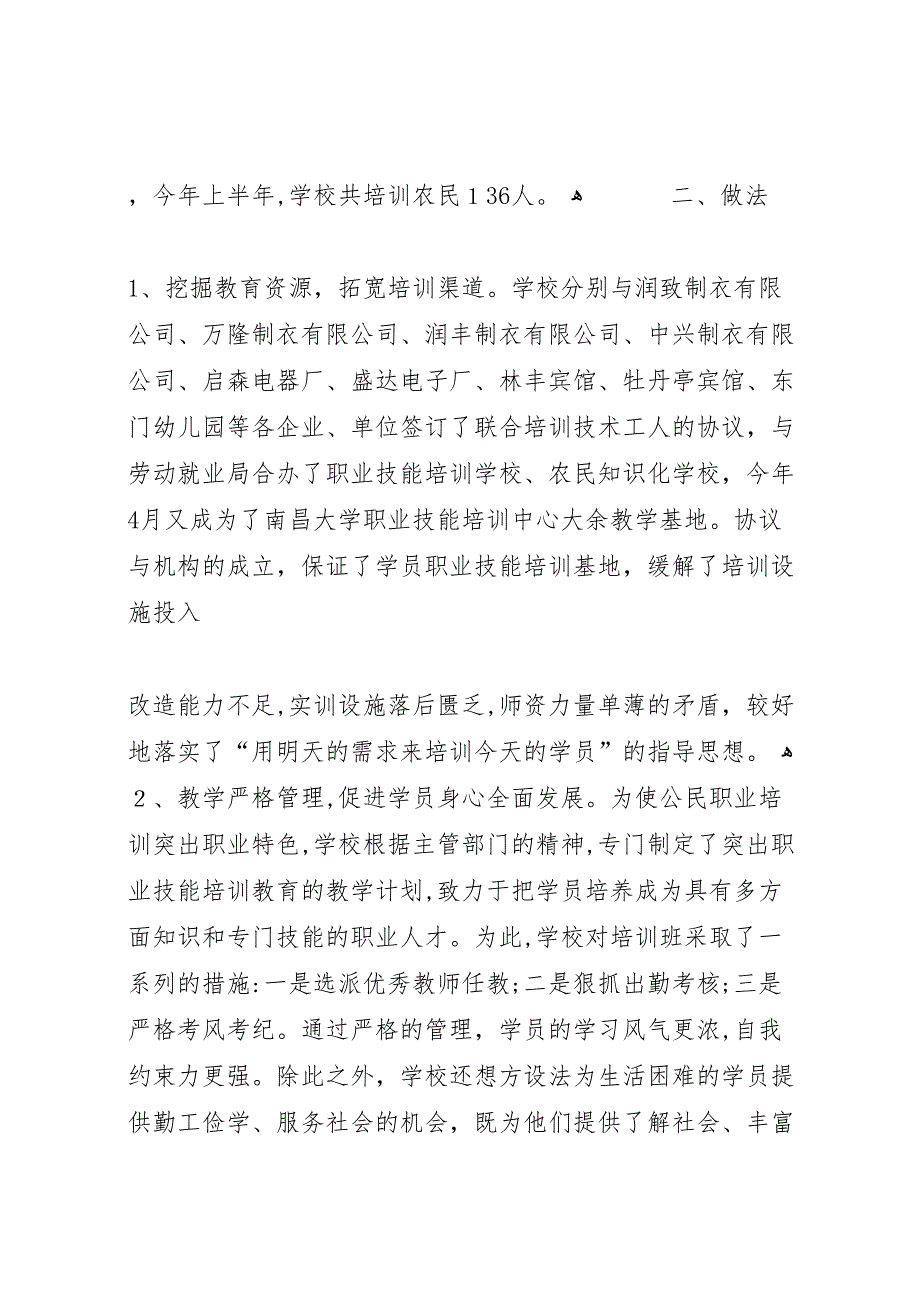 ，今年上半年,学校共培训农民１36人。 ﻫ　　　二、做法
1、挖掘教育资源，拓宽培训渠道。学校分别与润致制衣有限
公司、万隆制衣有限公司、润丰制衣有限公司、中兴制衣有限
公司、启森电器厂、盛达电子厂、林丰宾馆、牡丹亭宾馆、东
门幼儿园等各企业、单位签订了联合培训技术工人的协议，与
劳动就业局合办了职业技能培训学校、农民知识化学校，今年
4月又成为了南昌大学职业技能培训中心大余教学基地。协议
与机构的成立，保证了学员职业技能培训基地，缓解了培训设
施投入
改造能力不足,实训设施落后匮乏,师资力量单薄的矛盾，较好
地落实了“用明天的需求来培训今天的学员”的指导思想。 ﻫ
２、教学严格管理,促进学员身心全面发展。为使公民职业培
训突出职业特色,学校根据主管部门的精神,专门制定了突出职
业技能培训教育的教学计划,致力于把学员培养成为具有多方
面知识和专门技能的职业人才。为此,学校对培训班采取了一
系列的措施:一是选派优秀教师任教;二是狠抓出勤考核;三是
严格考风考纪。通过严格的管理，学员的学习风气更浓,自我
约束力更强。除此之外，学校还想方设法为生活困难的学员提
供勤工俭学、服务社会的机会，既为他们提供了解社会、丰富